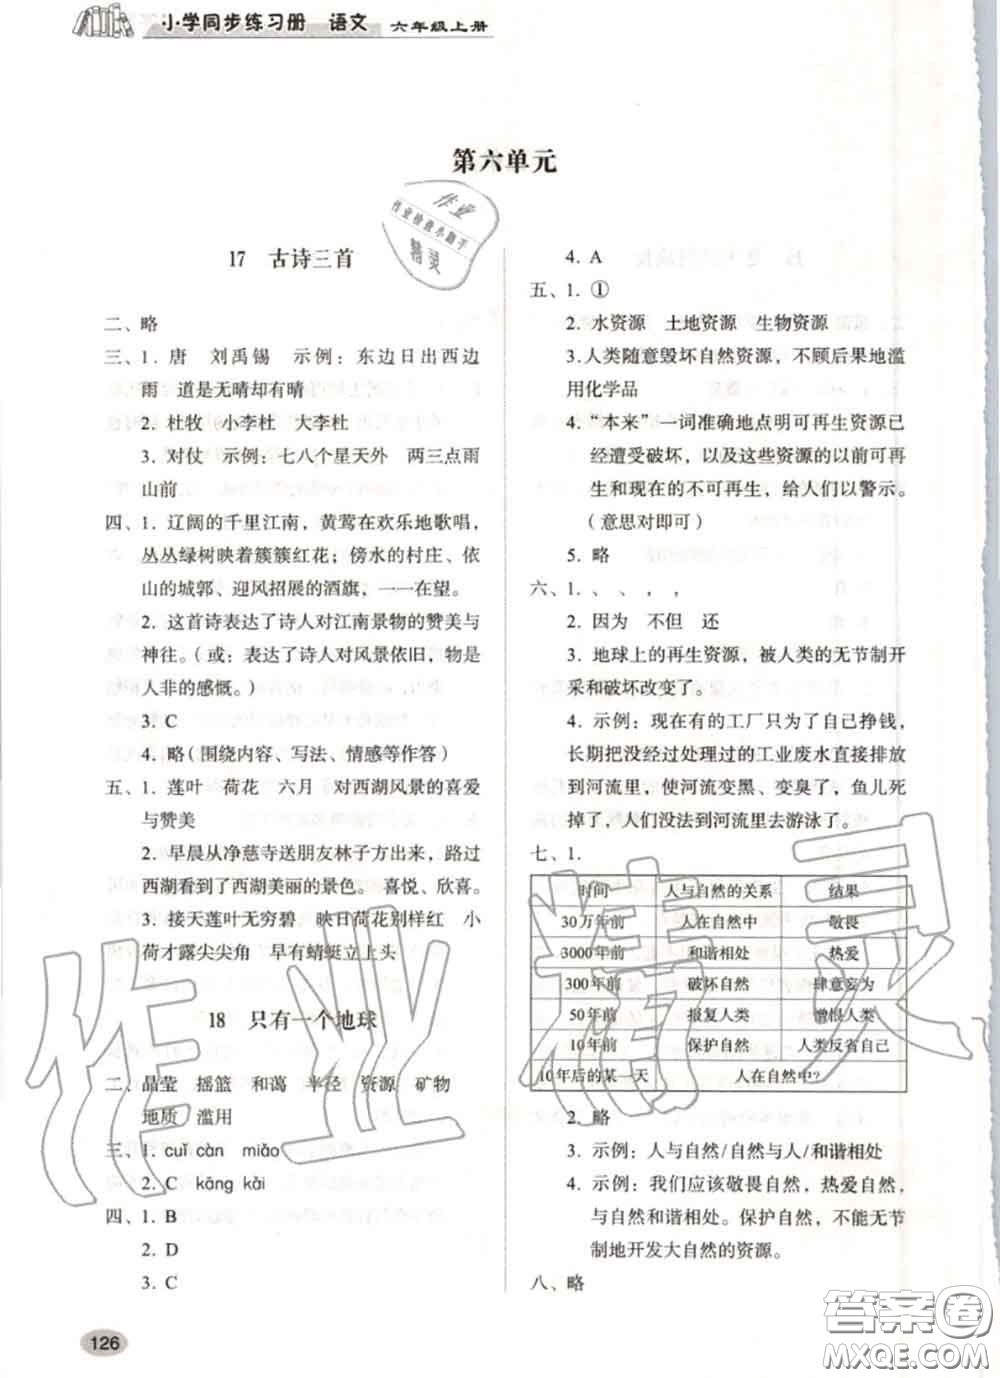 小学同步练习册 语文 六年级上册
第六单元
作业
作业检查小助手
精灵
17 古诗三首
二、略
三、1. 唐 刘禹锡 示例：东边日出西边
雨 道是无晴却有晴
2. 杜牧 小李杜 大李杜
3. 对仗 示例：七八个星天外 两三点雨
山前
四、1. 辽阔的千里江南，黄莺在欢乐地歌唱，
丛丛绿树映着簇簇红花；傍水的村庄、依
山的城郭、迎风招展的酒旗，一一在望。
2. 这首诗表达了诗人对江南景物的赞美与
神往。（或：表达了诗人对风景依旧，物是
人非的感慨。）
3. C
4. 略（围绕内容、写法、情感等作答）
五、1. 莲叶 荷花 六月 对西湖风景的喜爱
与赞美
2. 早晨从净慈寺送朋友林子方出来，路过
西湖看到了西湖美丽的景色。 喜悦、欣喜。
3. 接天莲叶无穷碧 映日荷花别样红 小
荷才露尖尖角 早有蜻蜓立上头
18 只有一个地球
二、晶莹 摇篮 和蔼 半径 资源 矿物
地质 滥用
三、1. cuī càn miǎo
2. C kāng kǎi
四、1. B
2. D
3. C
4. A
五、1. ①
2. 水资源 土地资源 生物资源
3.人类随意毁坏自然资源，不顾后果地滥
用化学品
4. “本来”一词准确地点明可再生资源已
经遭受破坏，以及这些资源的以前可再
生和现在的不可再生，给人们以警示。
（意思对即可）
5. 略
六、1. 、 、 ， ，
2. 因为 不但 还
3. 地球上的再生资源，被人类的无节制开
采和破坏改变了。
4. 示例：现在有的工厂只为了自己挣钱，
长期把没经过处理过的工业废水直接排放
到河流里，使河流变黑、变臭了，鱼儿死
掉了，人们没法到河流里去游泳了。
七、1.
时间 人与自然的关系 结果
30万年前 人在自然中 敬畏
3000年前 和谐相处 热爱
300年前 破坏自然 肆意妄为
50年前 报复人类 憎恨人类
10年前 保护自然 人类反省自己
10年后的某一天 人在自然中?
2. 略
3. 示例：人与自然/自然与人/和谐相处
4. 示例：我们应该敬畏自然，热爱自然，
与自然和谐相处。保护自然，不能无节
制地开发大自然的资源。
八、略
126
作业精灵
答案圈
MXQE.COM